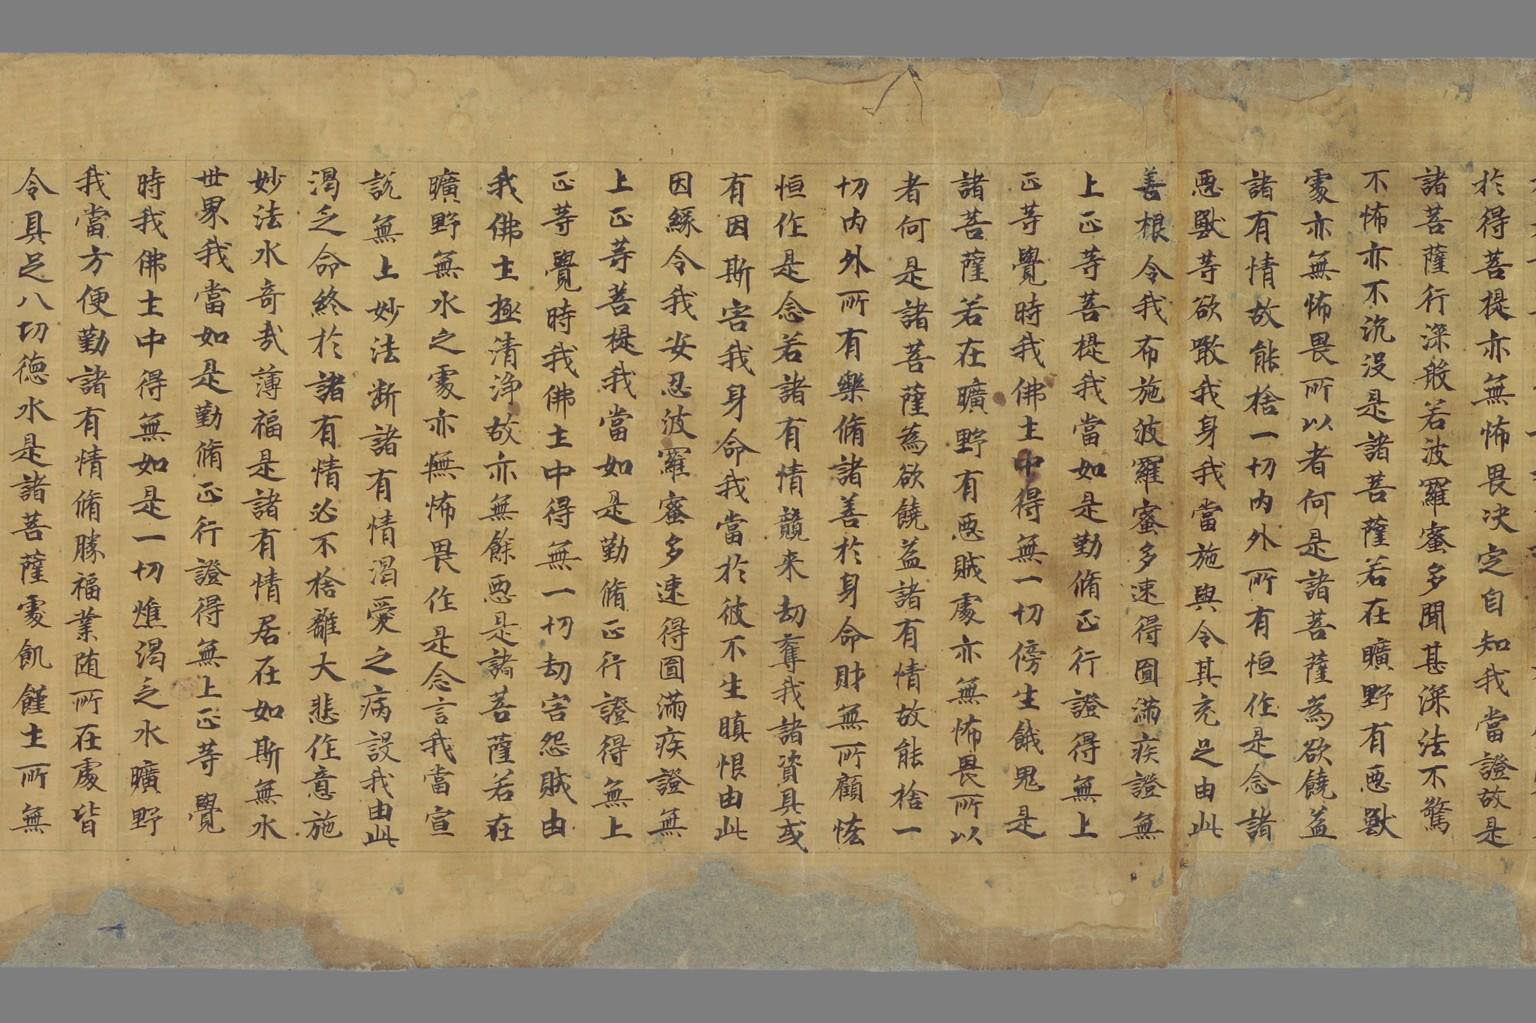 於得菩提亦無怖畏决定自知我當證故是
諸菩薩行深般若波羅蜜多聞甚深法不驚
不怖亦不沉沒是諸菩薩若在曠野有惡獸
處亦無怖畏所以者何是諸菩薩為欲饒益
諸有情故能捨一切内外所有恒作是念諸
惡獸等欲噉我身我當施與令其充足由此
善根令我布施波羅蜜多速得圓滿疾證無
上正等菩提我當如是勤脩正行證得無上
正等覺時我佛土中得無一切傍生餓鬼是
諸菩薩若在曠野有惡賊處亦無怖畏所以
者何是諸菩薩為欲饒益諸有情故能捨一
切内外所有樂脩諸善於身命財無所顧恡
恒作是念若諸有情競来劫奪我諸資具或
有因斯害我身命我當於彼不生瞋恨由此
因緣令我安忍波羅蜜多速得圓滿疾證無
上正等菩提我當如是勤脩正行證得無上
正等覺時我佛土中得無一切劫害怨賊由
我佛土極清浄故亦無餘惡是諸菩薩若在
曠野無水之處亦無怖畏作是念言我當宣
說無上妙法断諸有情渴愛之病設我由此
渴乏命終於諸有情必不捨離大悲作意施
妙法水奇哉薄福是諸有情居在如斯無水
世界我當如是勤脩正行證得無上正等覺
時我佛土中得無如是一切燋渴乏水曠野
我當方便勤諸有情脩勝福業随所在處皆
令具足八切德水是諸菩薩處飢饉土所無